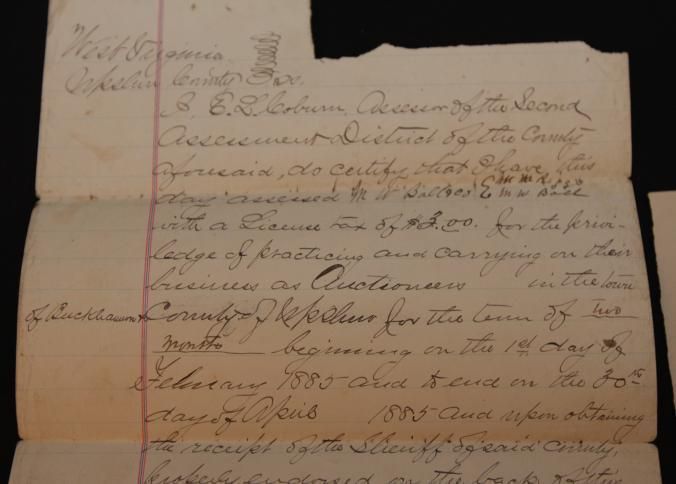 West Virginia
Upshur County Sss.
I E. L. Coburn Assessor of the Second
Assessment District of the County
aforesaid, do certify that I have this
day assessed
with a License tax of $3.00. for the privi-
ledge of practicing and carrying on their
business as Auctioneers in the town
of Buckhannon County of Upshur for the term of two
months beginning on the 1st day of
February 1885 and to end on the 30th
day of April 1885 and upon obtaining
the receipt of the Sheriff of said County,
properly endorsed on the back of this